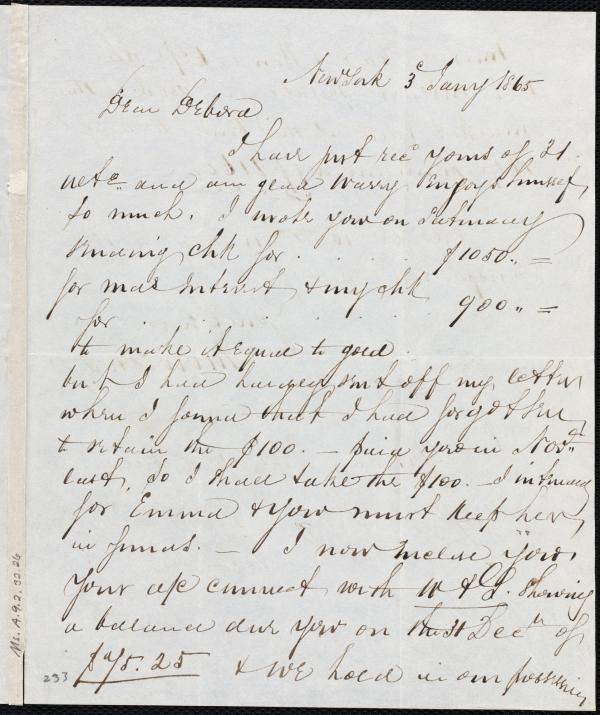 New York 3d Jany 1865
Dear Debora
I have just recd yours of 31
and am glad Warry enjoys himself
so much. I wrote you on Saturday
sending chk for . . . . $1050.. =
for mas Interest & my chk
for . . . . . 900.. =
to make it equal to gold
but I had hardly sent off my letter
when I found that I had forgotten
to retain the $100. — paid you in Novr
last, So I shall take the $100. — I intended
for Emma & you must keep her
in funds. — I now inclose you
your a/c current with W & Co. showing
a balance due you on the 31 Decr of
& we hold in our possession
Ms. A.9.2.32.26
233